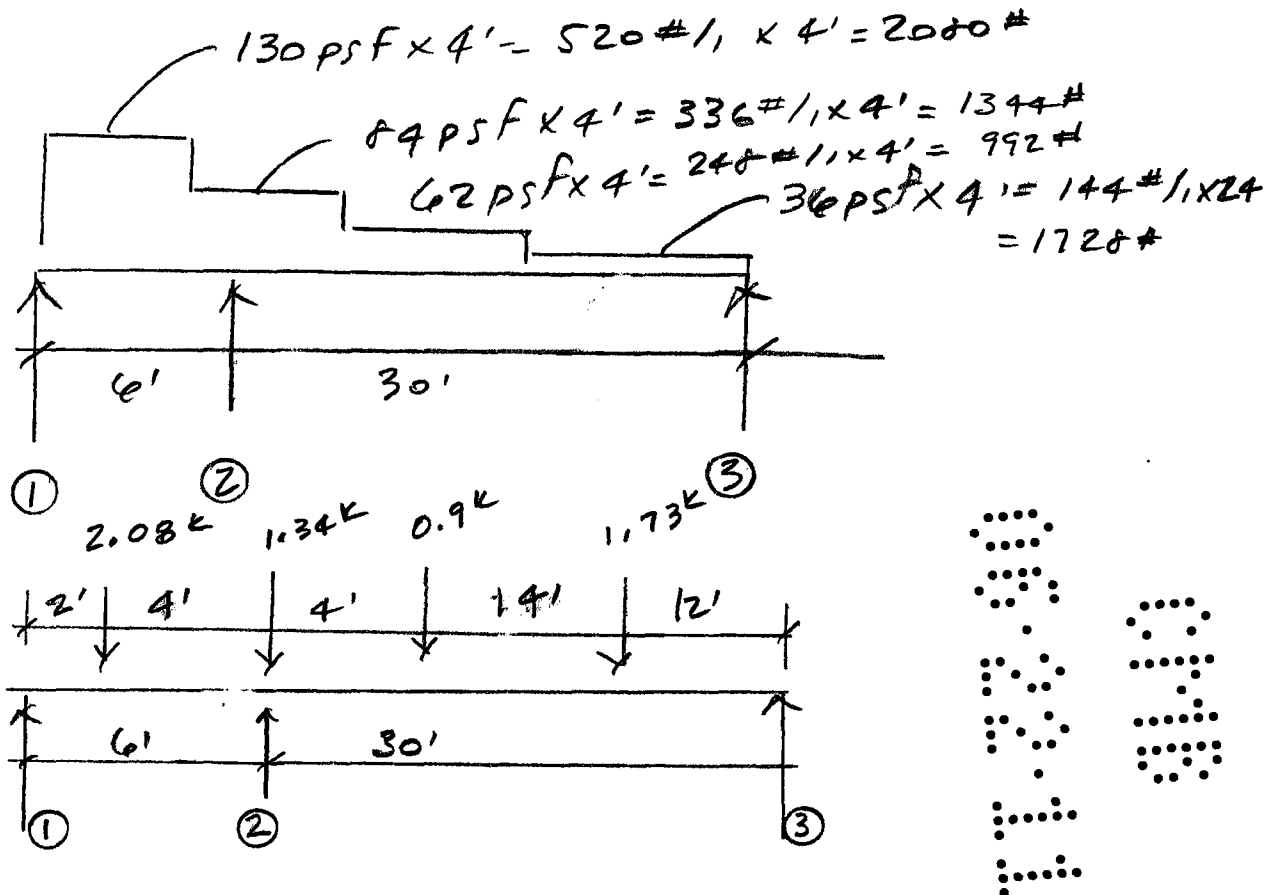 130 psf x 4' = 520 #/, x 4' = 2080 #
84 psf x 4' = 336 #/, x 4' = 1344 #
62 psf x 4' = 248 #/, x 4' = 992 #
36 psf x 4' = 144 #/, x 24
= 1728 #
6' 30'
① ② ③
2.08 k 1.34 k 0.9 k 1.73 k
2' 4' 4' 14' 12'
6' 30'
① ② ③